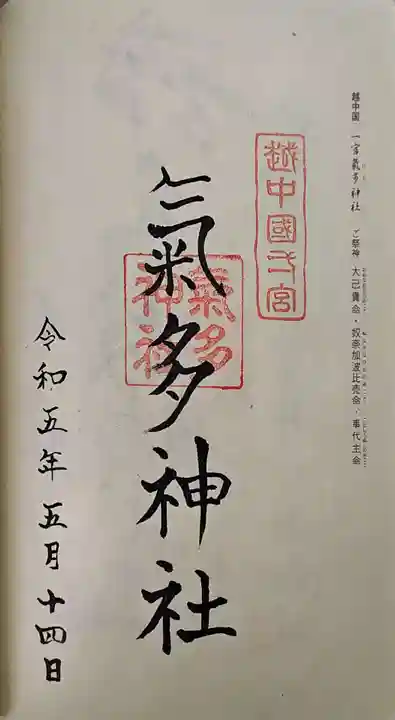 越中国 一宮氣多神社 ご祭神 大己貴命・奴奈加波比売命・事代主命
越中國一宮
氣多神社
氣多
神社
令和五年五月十四日